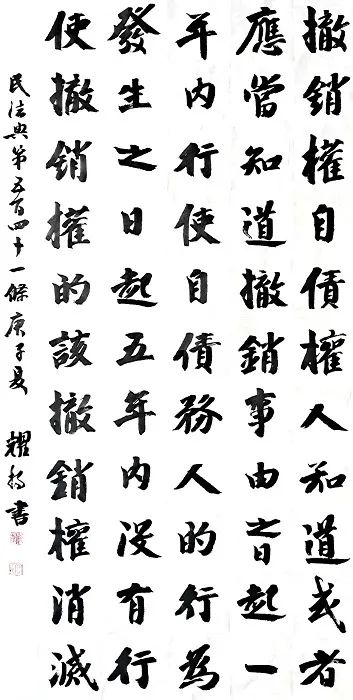 撤銷權自債權人知道或者
應當知道撤銷事由之日起一
年内行使自債務人的行為
發生之日起五年内没有行
使撤銷權的該撤銷權消滅
民法典第五百四十一條庚子夏 耀書